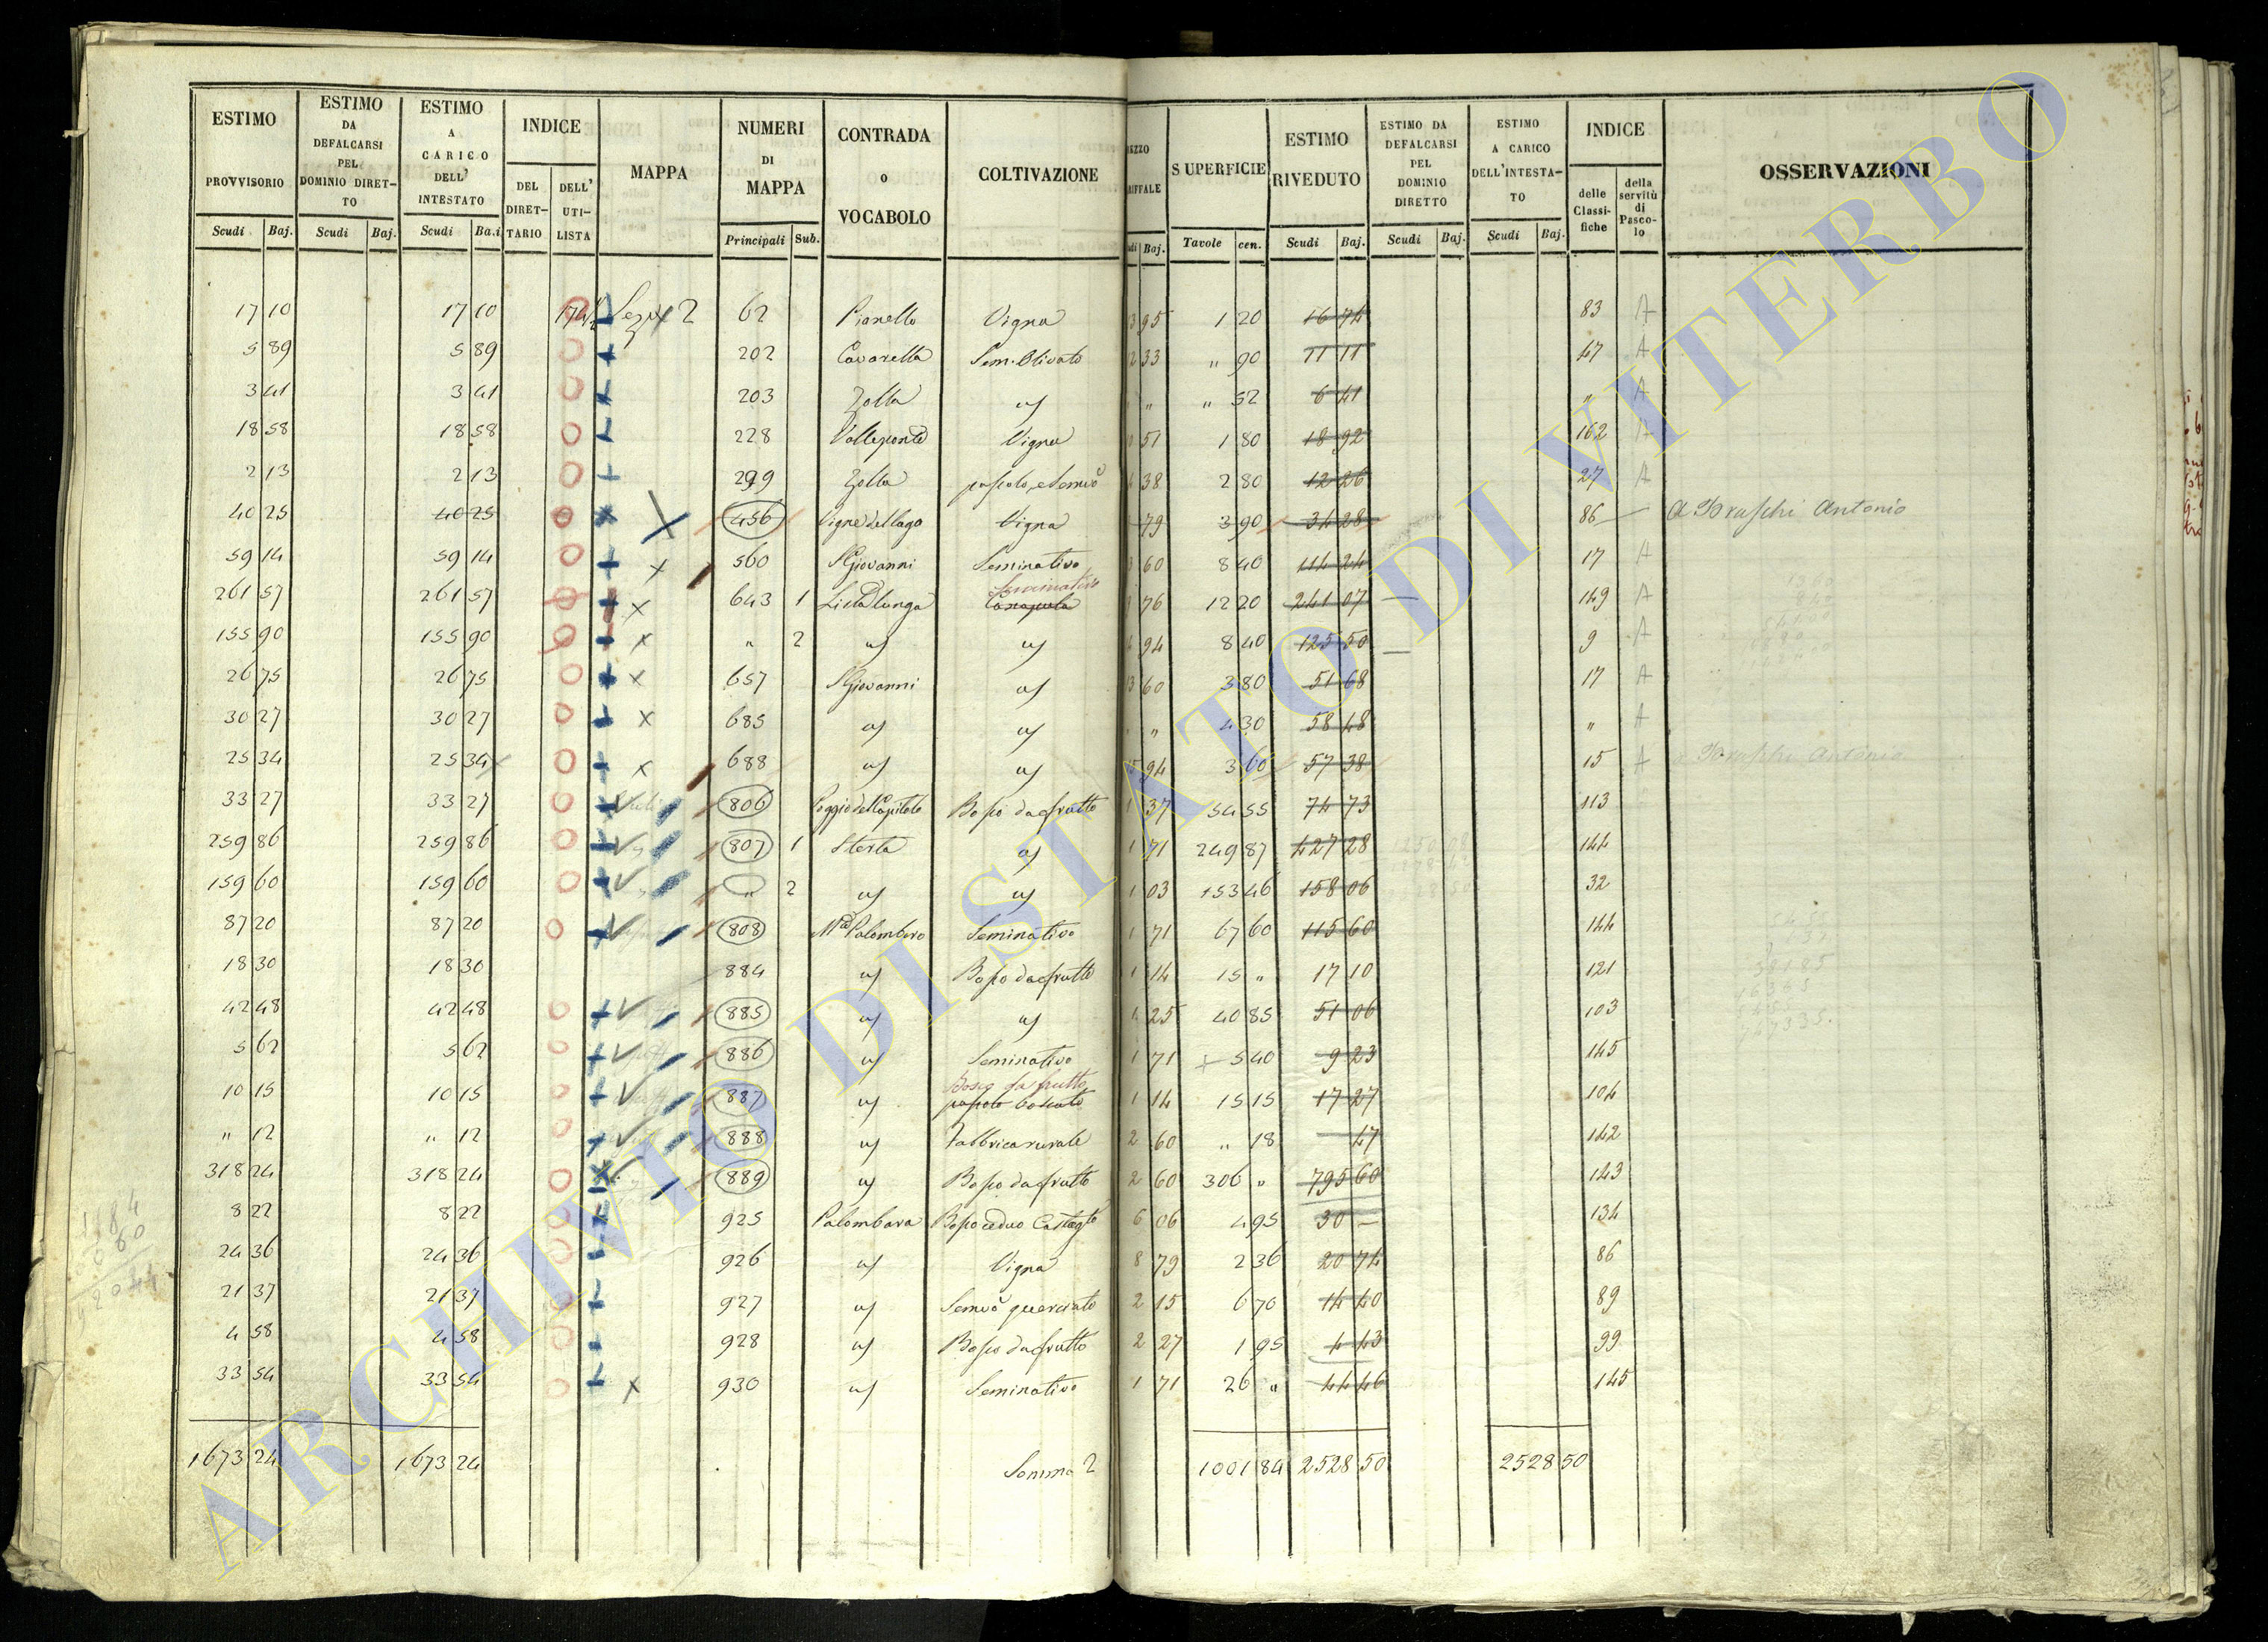 ESTIMO PROVVISORIO Scudi Baj. | ESTIMO DA DEFALCARSI PEL DOMINIO DIRET-TO Scudi Baj. | ESTIMO A CARICO DELL' INTESTATO Scudi Ba.i | INDICE DEL DIRET-TARIO | DELL' UTI-LISTA | MAPPA | NUMERI DI MAPPA Principali Sub. | CONTRADA O VOCABOLO | COLTIVAZIONE | SUPERFICIE Tavole cen. | ESTIMO RIVEDUTO Scudi Baj. | ESTIMO DA DEFALCARSI PEL DOMINIO DIRETTO Scudi Baj. | ESTIMO A CARICO DELL'INTESTA-TO Scudi Baj. | INDICE delle Classi-fiche | della servitù di Pasco-lo | OSSERVAZIONI
17 10 17 10 2 62 Pianello Vigna 95 1 20 16 74 83 A
5 89 5 89 202 Cavarella Sem. Olivato 33 " 90 11 11 47 A
3 41 3 41 203 Zolla " " 52 6 41 " A
18 58 18 58 228 Vigna 51 1 80 18 92 162 A
2 13 2 13 299 Zolla 38 2 80 12 26 27 A
40 25 40 25 456 Vigne del lago Vigna 79 3 90 34 28 86 A Braschi Antonio
59 14 59 14 560 S Giovanni Seminativo 60 8 40 114 24 17 A
Seminativo
261 57 261 57 643 1 Lista lunga 76 12 20 241 07 149 A
155 90 155 90 " 2 94 8 40 125 50 9 A
26 75 26 75 657 S Giovanni 60 3 80 51 68 17 A
30 27 30 27 685 " 4 30 58 48 " A
25 34 25 34 688 94 3 60 57 38 15 A Braschi Antonio
33 27 33 27 806 Poggio del Capitolo Bosco da frutto 1 37 54 55 74 73 113
259 86 259 86 807 1 Sterta 1 71 249 87 427 28 144
159 60 159 60 " 2 1 03 153 46 158 06 32
87 20 87 20 808 Palombaro Seminativo 1 71 67 60 115 60 144
18 30 18 30 884 Bosco da frutto 1 14 15 " 17 10 121
42 48 42 48 885 1 25 40 85 51 06 103
5 62 5 62 886 Seminativo 1 71 5 40 9 23 145
Bosco da frutto
10 15 10 15 887 pascolo boscato 1 14 15 15 17 27 104
" 12 " 12 888 Fabbrica rurale 2 60 " 18 47 142
318 24 318 24 889 Bosco da frutto 2 60 306 " 795 60 143
8 22 8 22 925 Palombara Bosco ceduo 6 06 4 95 30 — 134
24 36 24 36 926 Vigna 8 79 2 36 20 74 86
21 37 21 37 927 2 15 6 70 14 40 89
4 58 4 58 928 Bosco da frutto 2 27 1 95 4 43 99
33 54 33 54 930 Seminativo 1 71 26 " 44 46 145
1673 24 1673 24 Somma 2 1001 84 2528 50 2528 50
ARCHIVIO DI STATO DI VITERBO